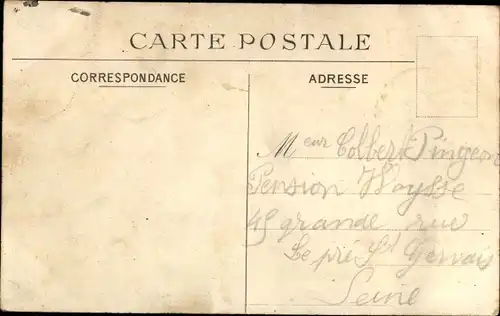 CARTE POSTALE
CORRESPONDANCE
ADRESSE
Meur Colbert Pingeon
Pension Woysse
45 grande rue
Le pré St Gervais
Seine